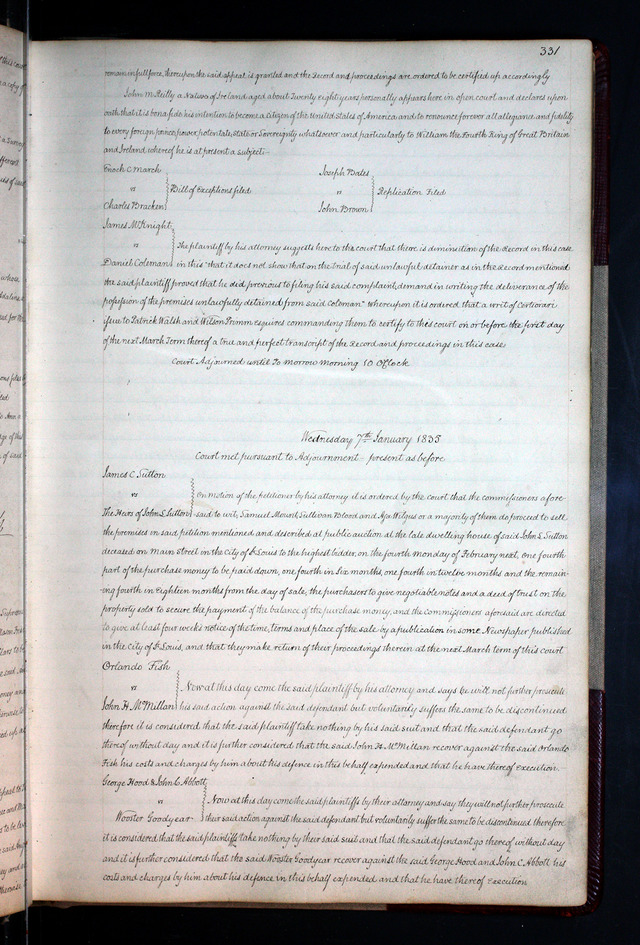 331
remain in full force, thereupon the said appeal is granted and the Record and proceedings are ordered to be certified up accordingly
John McReilly a Native of Ireland aged about Twenty eight years personally appears here in open court and declares upon
oath that it is bona fide his intention to become a citizen of the United States of America and to renounce forever all allegiance and fidelity
to every foreign prince power, potentate, state or Sovereignty whatsoever and particularly to William the Fourth King of Great Britain
and Ireland whereof he is at present a subject.
Enoch C March
vs Bill of exceptions filed
Charles Bracken
Joseph Bates
vs Replication Filed
John Brown
James McKnight
vs The plaintiff by his attorney suggests here to the court that there is diminution of the record in this case
Daniel Coleman in this "that it does not show that on the trial of said unlawful detainer as in the record mentioned
the said plaintiff proved that he did previous to filing his said complaint, demand in writing the deliverance of the
possession of the premises unlawfully detained from said Coleman" whereupon it is ordered that a writ of Certiorari
issue to Patrick Walsh and Wilson Primm Esquires commanding them to certify to this court on or before the first day
of the next March Term thereof a true and perfect transcript of the Record and proceedings in this case
Court Adjourned until To morrow morning 10 O'Clock
Wednesday 7th January 1835
Court met pursuant to Adjournment - present as before
James C Sutton
vs On motion of the petitioner by his attorney it is ordered by the court that the commissioners afore-
The Heirs of John L Sutton said to wit, Samuel Mount, Sullivan Blood and Asa Wilgus or a majority of them do proceed to sell
the premises in said petition mentioned and described at public auction at the late dwelling house of said John L Sutton
deceased on Main street in the City of St Louis to the highest bidder, on the fourth monday of February next, one fourth
part of the purchase money to be paid down, one fourth in Six months, one fourth in twelve months and the remain-
-ing fourth in Eighteen months from the day of sale, the purchasers to give negotiable notes and a deed of trust on the
property sold to secure the payment of the balance of the purchase money, and the Commissioners aforesaid are directed
to give at least four weeks notice of the time, terms and place of the sale by a publication in some Newspaper published
in the City of St Louis, and that they make return of their proceedings therein at the next March term of this court
Orlando Fish
vs Now at this day come the said plaintiff by his attorney and says he will not further prosecute
John H McMillan his said action against the said defendant but voluntarily suffers the same to be discontinued
therefore it is considered that the said plaintiff take nothing by his said suit and that the said defendant go
thereof without day and it is further considered that the said John H. McMillan recover against the said Orlando
Fish his costs and charges by him about his defence in this behalf expended and that he have thereof execution
George Hood & John C Abbott
vs Now at this day come the said plaintiffs by their attorney and say they will not further prosecute
Wooster Goodyear their said action against the said defendant but voluntarily suffer the same to be discontinued therefore
it is considered that the said plaintiffs take nothing by their said suit and that the said defendant go thereof without day
and it is further considered that the said Wooster Goodyear recover against the said George Hood and John C Abbott his
costs and charges by him about his defence in this behalf expended and that he have thereof Execution